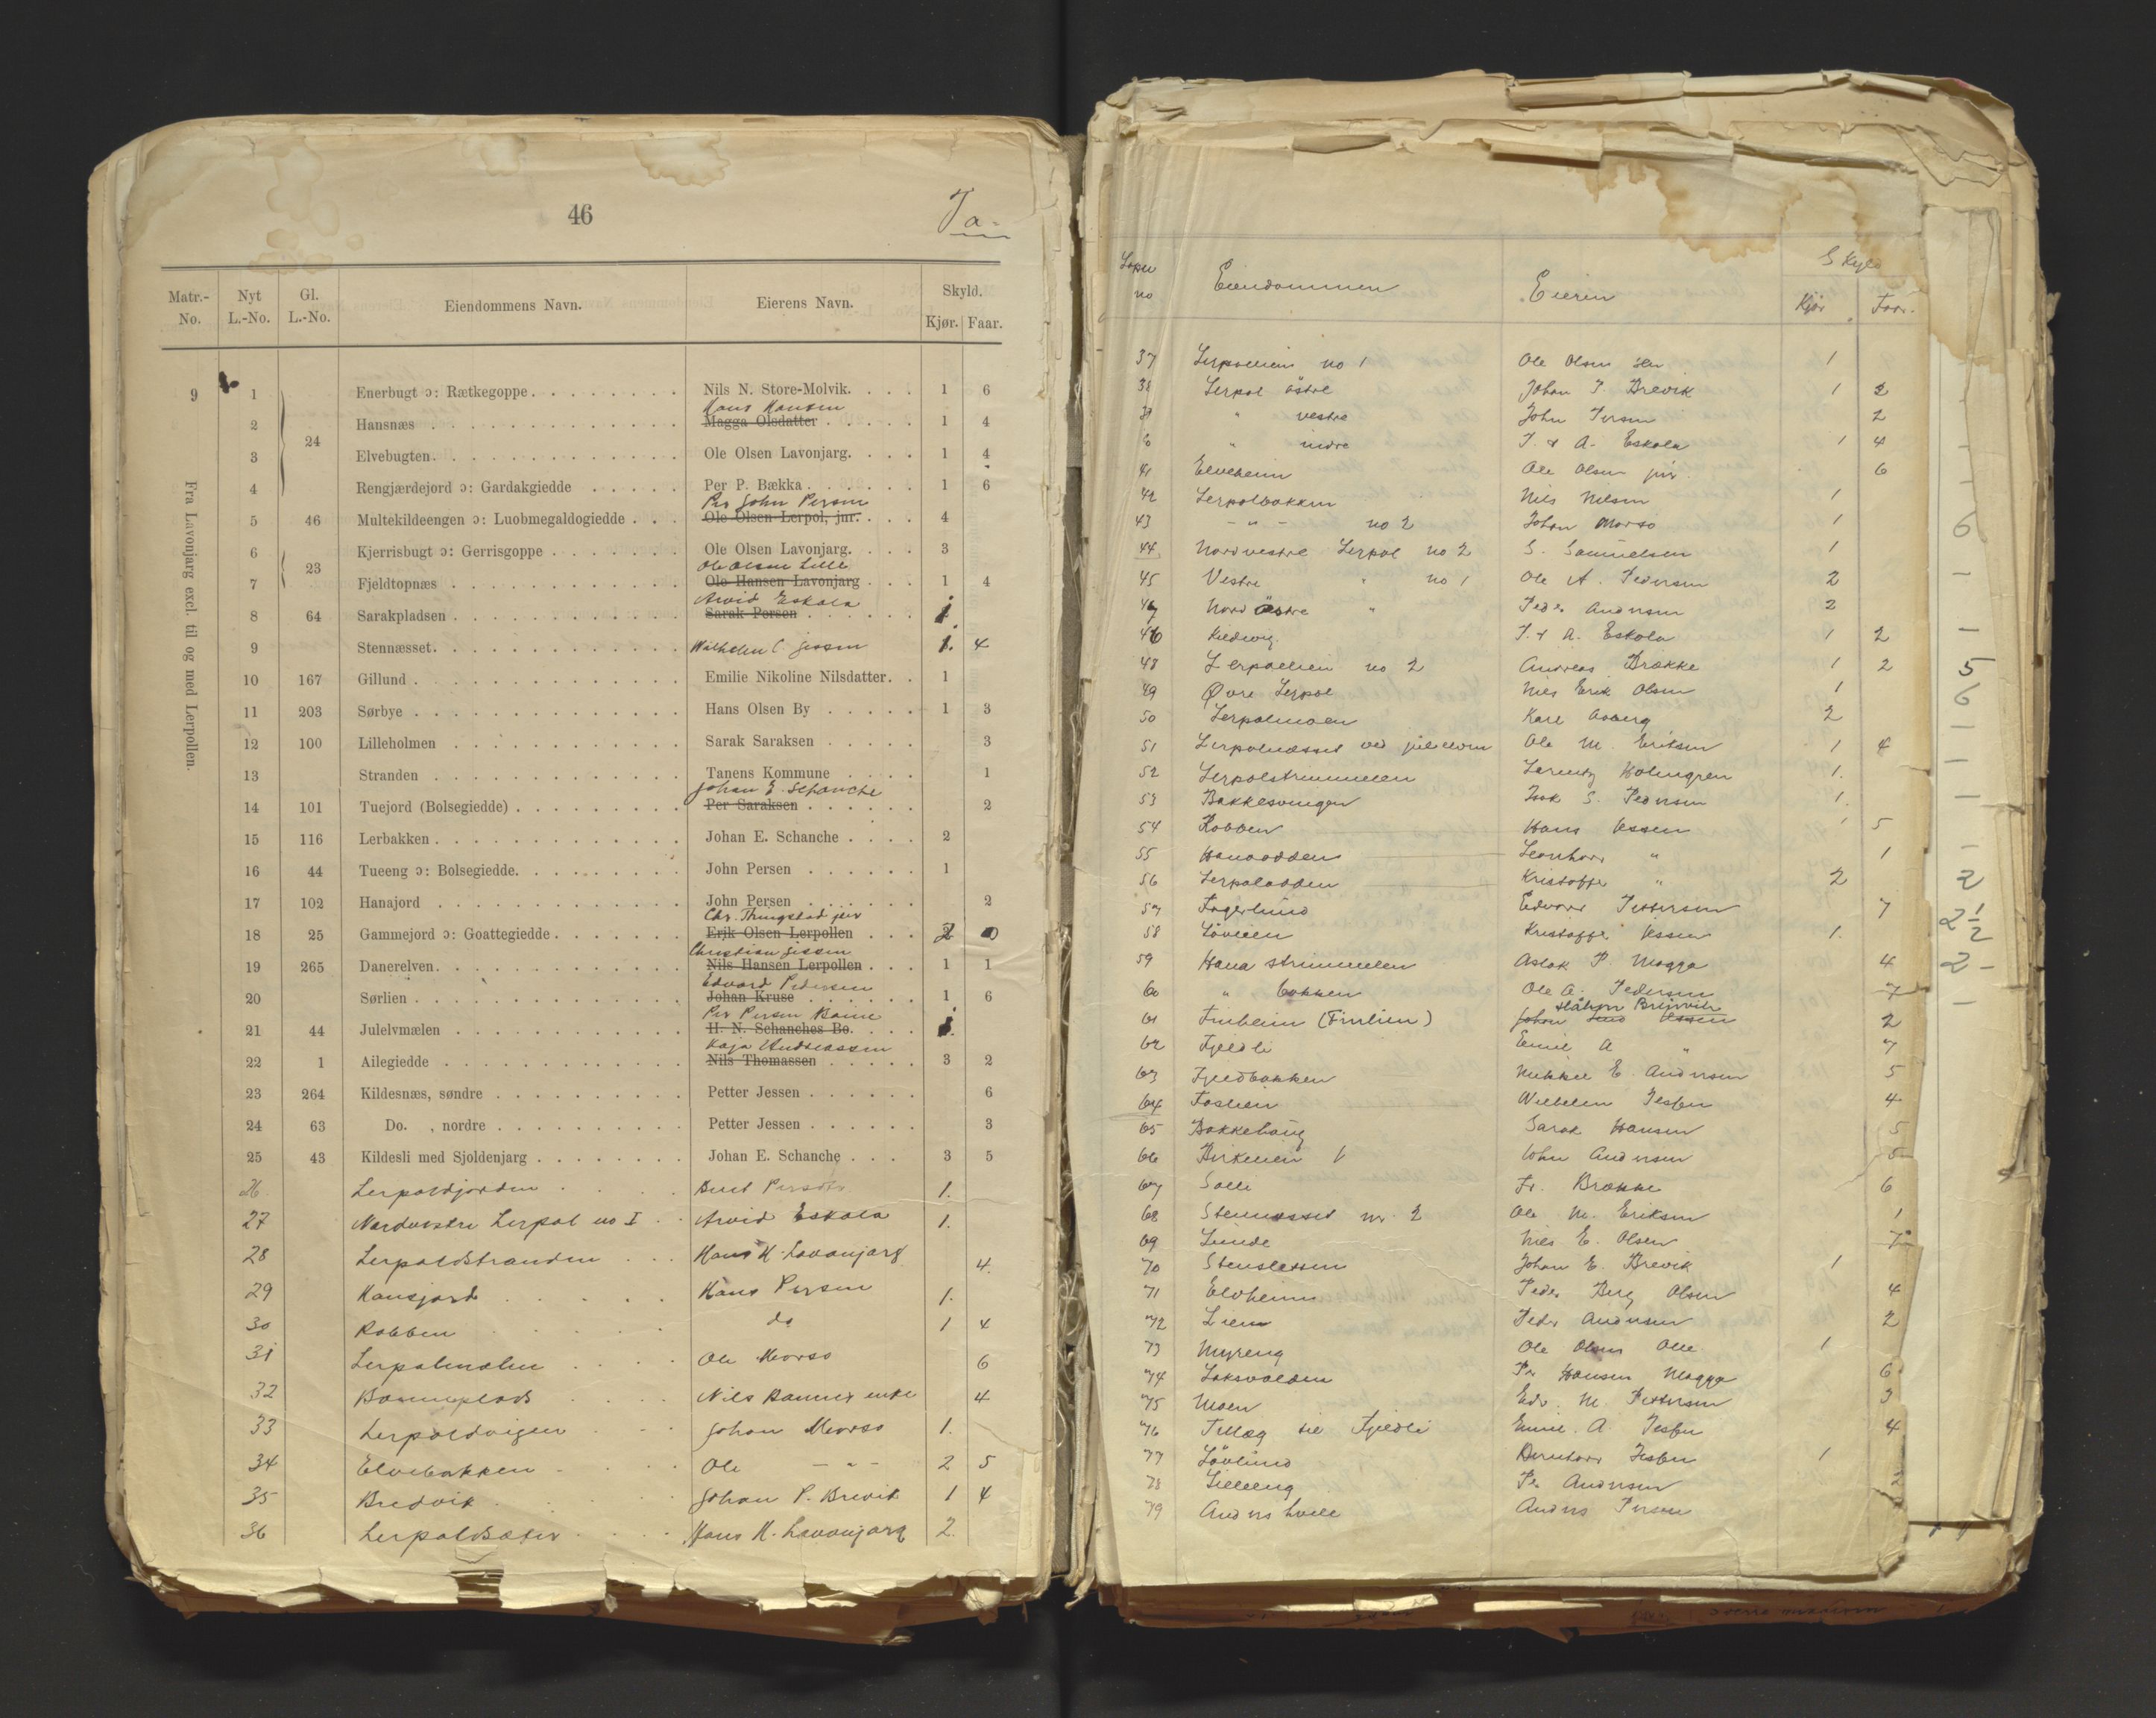 46
Matr.- No. Nyt L.-No. Gl. L.-No. Eiendommens Navn. Eierens Navn. Skyld.
Kjør. Faar.
Fra Lavonjarg excl. til og med Lerpollen.
9 1 Enerbugt ɔ: Rætkegoppe Nils N. Store-Molvik. 1 6
Hans Hansen
2 24 Hansnæs Magga Olsdatter 1 4
3 Elvebugten. Ole Olsen Lavonjarg. 1 4
4 Rengjærdejord ɔ: Gardakgiedde Per P. Bækka 1 6
Per John Persen
5 46 Multekildeengen ɔ: Luobmegaldogiedde Ole Olsen Lerpol, jur. 4
6 23 Kjerrisbugt ɔ: Gerrisgoppe Ole Olsen Lavonjarg. 3
Ole Olsen Lille
7 Fjeldtopnæs Ole Hansen Lavonjarg 1 4
Arvid Eskola
8 64 Sarakpladsen Sarak Persen 1
9 Stennæsset. Wilhelm C. Jessen 1. 4
10 167 Gillund Emilie Nikoline Nilsdatter. 1
11 203 Sørbye Hans Olsen By 1 3
12 100 Lilleholmen Sarak Saraksen 3
13 Stranden Tanens Kommune 1
Johan E. Schanche
14 101 Tuejord (Bolsegiedde) Per Saraksen 2
15 116 Lerbakken Johan E. Schanche 2
16 44 Tueeng ɔ: Bolsegiedde. John Persen 1
17 102 Hanajord John Persen 2
Chr. Thingstad jun
18 25 Gammejord ɔ: Goattegiedde Erik Olsen Lerpollen 2
Christian Jessen
19 265 Danerelven. Nils Hansen Lerpollen 1 1
Edvard Pedersen
20 Sørlien Johan Kruse 1 6
Per Persen
21 44 Julelvmælen H. N. Schanches Bo.
Kaja Andreassen
22 1 Ailegiedde Nils Thomassen 3 2
23 264 Kildesnæs, søndre Petter Jessen 6
24 63 Do. , nordre Petter Jessen 3
25 43 Kildesli med Sjoldenjarg Johan E. Schanche 3 5
26 Lerpoldjorden 1.
27 Nordvestre Lerpol no I Arvid Eskola 1.
28 Lerpoldstranden Hans H. Lavonjarg 4.
29 Hansjord Hans Persen 1.
30 Kobben do 1 4
31 Lerpolmælen Ole Morso 6
32 Nils Banner enke 4
33 Lerpoldvigen Johan Morso 1.
34 Elvebakken Ole - " - 2 5
35 Bredvik Johan P. Brevik 1 4
36 Lerpoldsæter Hans H. Lavonjarg 2.
Løpe no Eiendommen Eieren Skyld
Kjør Faar.
37 Lerpollien no 1 Ole Olsen 1
38 Lerpol östre Johan P. Brevik 1 2
" vestre John Persen 2
" indre J. & A. Eskola 1 4
41 Elveheim Ole Olsen jur 6
42 Lerpolbakken Nils Nilsen 1
43 - " - no 2 Johan Morso 1
44 Nordvestre Lerpol no 2 S. Samuelsen 1
45 Vestre " no 1 Ole A. Pedersen 2
47 Nordöstre " Peder Andersen 2
46 J. & A. Eskola 1 2
48 Lerpollien no 2 Andreas Brække 1 2
49 Øvre Lerpol Nils Erik Olsen 1
50 Lerpolmoen Karl 2
51 Lerpolnæsset ved julelven Ole M. Eriksen 1 4
52 Lerpolstrimmelen Lorentz Holmgren 1.
53 Bakkesvingen Isak S. Pedersen 1.
54 Kobben Hans Jessen 5
55 Hanaodden Leonhard " 1
56 Lerpolodden Kristoffe " 2
57 Fagerlund Edvard Pettersen 7
58 Lövlien Kristoffe Jessen 1.
59 Hana strimmelen Aslak P. Magga 4
60 " bakken Ole A. Pedersen 7
61 Finheim (Finlien) Johan Jessen 2
62 Fjeldli Emil A " 7
63 Fjeldbakken Mikkel E. Andersen 5
64 Foslien Wilhelm Jessen 4
65 Bakkehaug Sarak Hansen 5
66 Birkelien John Andersen 5
67 Solli Fr. Brække 6
68 Stennæsset nr. 2 Ole M. Eriksen 1
69 Lunde Nils E. Olsen 7
70 Stensletten Johan E. Brevik 1
71 Elvheim Peder Berg Olsen 4
72 Lien Peder Andersen 2
73 Myreng Ole Olsen Olle 1
74 Laksvolden Per Hansen Magga 6
75 Moen Edv. M. Pettersen 3
76 Tillæg til Fjeldli Emil A. Jessen 4
77 Lövlund Jessen 1
78 Lilleeng Pe. Andersen 2
79 Anders hvile Anders Persen
6
5
6
2
2½
2